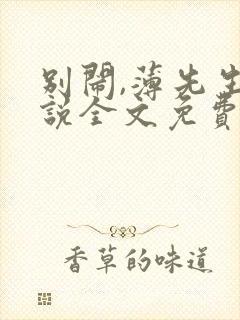 别鬧,薄先生
説全文免費
香草的味道